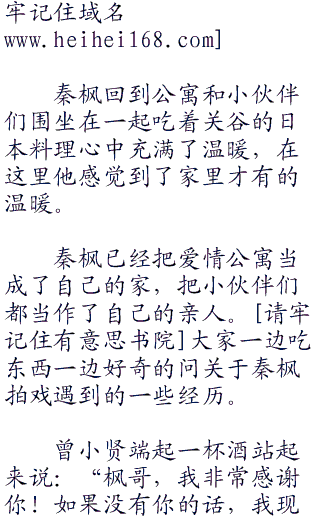 牢记住域名
www.heihei168.com]
秦枫回到公寓和小伙伴
们围坐在一起吃着关谷的日
本料理心中充满了温暖，在
这里他感觉到了家里才有的
温暖。
秦枫已经把爱情公寓当
成了自己的家，把小伙伴们
都当作了自己的亲人。[请牢
记住有意思书院]大家一边吃
东西一边好奇的问关于秦枫
拍戏遇到的一些经历。
曾小贤端起一杯酒站起
来说：“枫哥，我非常感谢
你！如果没有你的话，我现